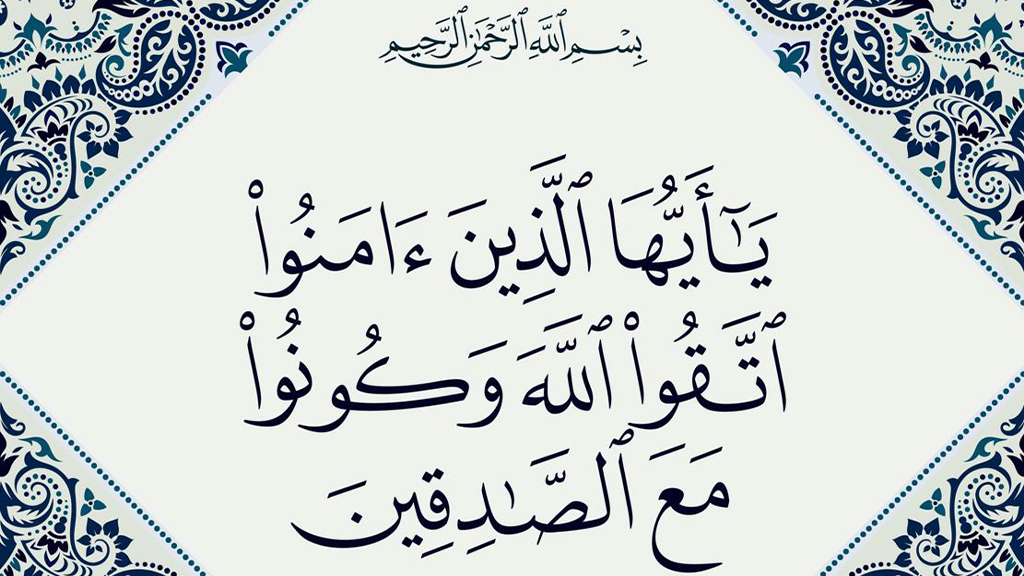 بِسْمِ ٱللَّهِ ٱلرَّحْمَٰنِ ٱلرَّحِيمِ
يَٰٓأَيُّهَا ٱلَّذِينَ ءَامَنُوا۟
ٱتَّقُوا۟ ٱللَّهَ وَكُونُوا۟
مَعَ ٱلصَّٰدِقِينَ